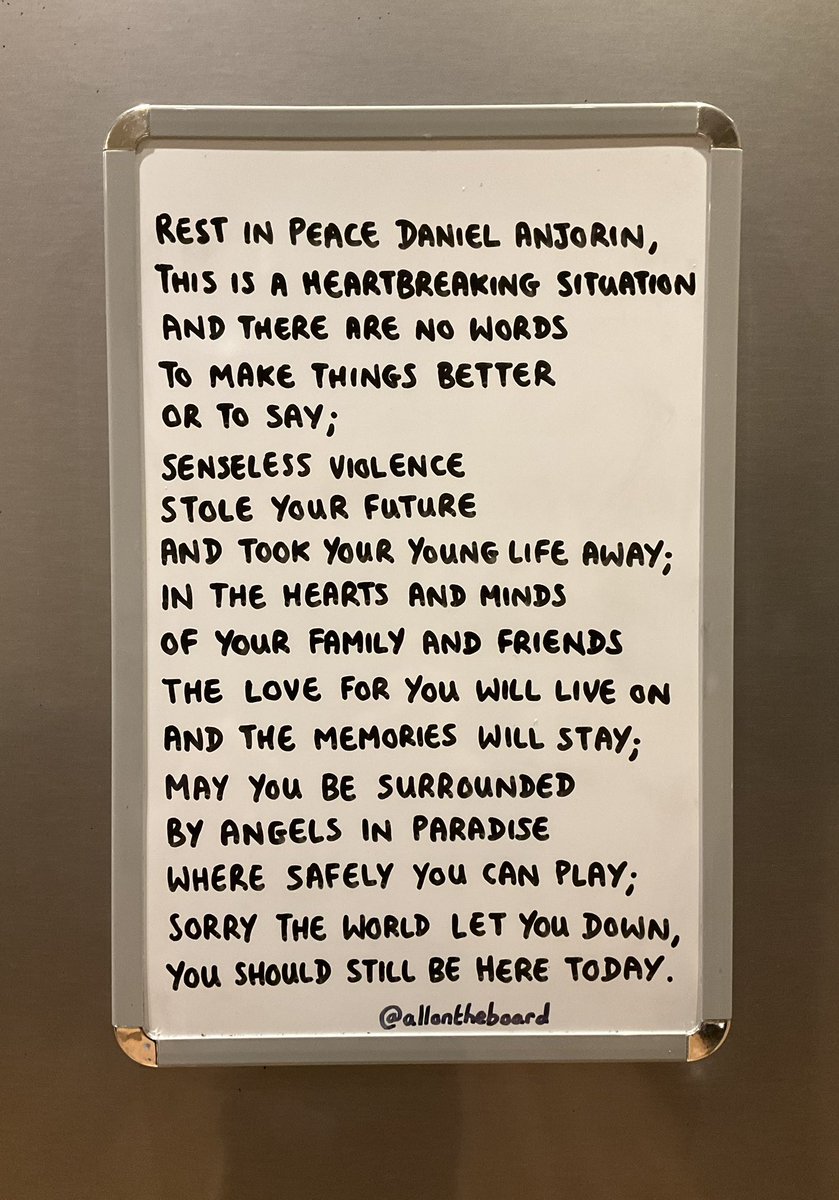 REST IN PEACE DANIEL ANJORIN,
THIS IS A HEARTBREAKING SITUATION
AND THERE ARE NO WORDS
TO MAKE THINGS BETTER
OR TO SAY;
SENSELESS VIOLENCE
STOLE YOUR FUTURE
AND TOOK YOUR YOUNG LIFE AWAY;
IN THE HEARTS AND MINDS
OF YOUR FAMILY AND FRIENDS
THE LOVE FOR YOU WILL LIVE ON
AND THE MEMORIES WILL STAY;
MAY YOU BE SURROUNDED
BY ANGELS IN PARADISE
WHERE SAFELY YOU CAN PLAY;
SORRY THE WORLD LET YOU DOWN,
YOU SHOULD STILL BE HERE TODAY.
@allontheboard